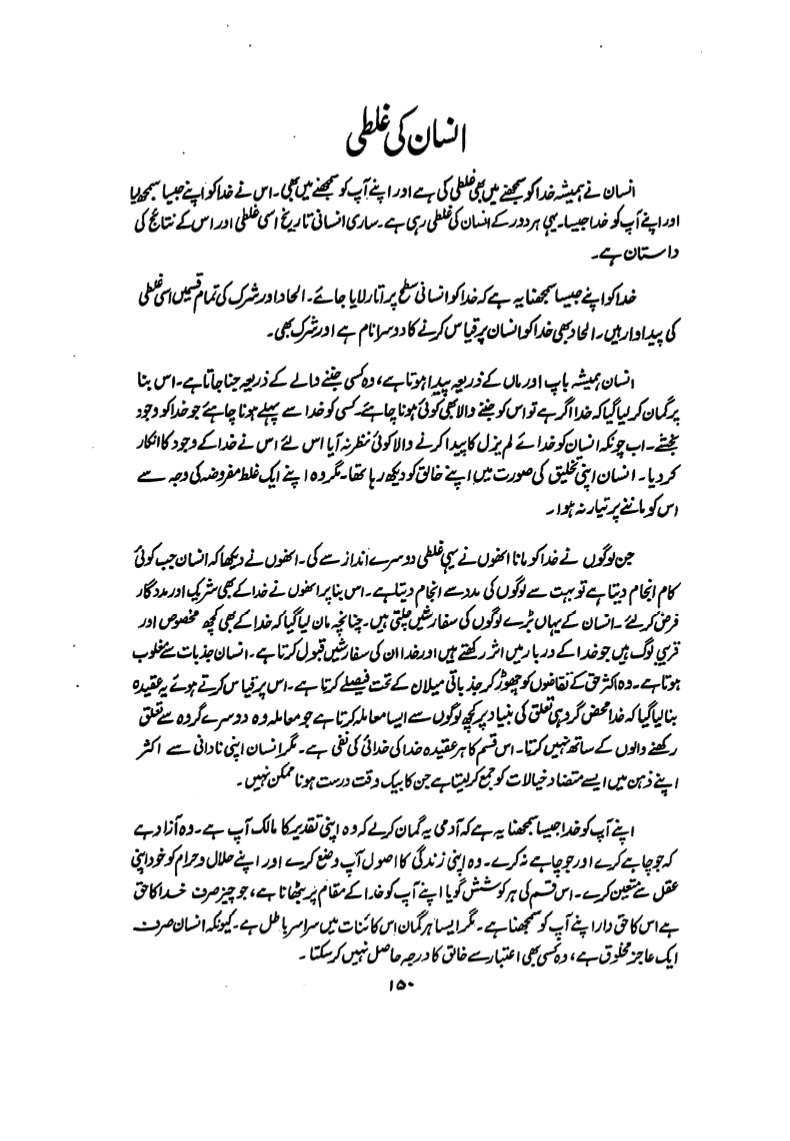 انسان کی غلطی
انسان نے ہمیشہ خدا کو سمجھنے میں بھی غلطی کی ہے اور اپنے آپ کو سمجھنے میں بھی۔ اس نے خدا کو اپنے جیسا سمجھ لیا
اور اپنے آپ کو خدا جیسا۔ یہی ہر دور کے انسان کی غلطی رہی ہے۔ ساری انسانی تاریخ اسی غلطی اور اس کے نتائج کی
داستان ہے۔
خدا کو اپنے جیسا سمجھنا یہ ہے کہ خدا کو انسانی سطح پر اتار لایا جائے۔ الحاد اور شرک کی تمام قسمیں اسی غلطی
کی پیداوار ہیں۔ الحاد بھی خدا کو انسان پر قیاس کرنے کا دوسرا نام ہے اور شرک بھی۔
انسان ہمیشہ باپ اور ماں کے ذریعہ پیدا ہوتا ہے، وہ کسی جننے والے کے ذریعہ جنا جاتا ہے۔ اس بنا
پر گمان کر لیا گیا کہ خدا اگر ہے تو اس کو جننے والا بھی کوئی ہونا چاہئے۔ کسی کو خدا سے پہلے ہونا چاہئے جو خدا کو وجود
بخشے۔ اب چونکہ انسان کو خدائے لم یزل کا پیدا کرنے والا کوئی نظر نہ آیا اس لئے اس نے خدا کے وجود کا انکار
کر دیا۔ انسان اپنی تخلیق کی صورت میں اپنے خالق کو دیکھ رہا تھا۔ مگر وہ اپنے ایک غلط مفروضہ کی وجہ سے
اس کو ماننے پر تیار نہ ہوا۔
جن لوگوں نے خدا کو مانا انھوں نے یہی غلطی دوسرے انداز سے کی۔ انھوں نے دیکھا کہ انسان جب کوئی
کام انجام دیتا ہے تو بہت سے لوگوں کی مدد سے انجام دیتا ہے۔ اس بنا پر انھوں نے خدا کے بھی شریک اور مددگار
فرض کر لئے۔ انسان کے یہاں بڑے لوگوں کی سفارشیں چلتی ہیں۔ چنانچہ مان لیا گیا کہ خدا کے بھی کچھ مخصوص اور
قریبی لوگ ہیں جو خدا کے دربار میں اثر رکھتے ہیں اور خدا ان کی سفارشیں قبول کرتا ہے۔ انسان جذبات سے مغلوب
ہوتا ہے۔ وہ اکثر حق کے تقاضوں کو چھوڑ کر جذباتی میلان کے تحت فیصلے کرتا ہے۔ اس پر قیاس کرتے ہوئے یہ عقیدہ
بنا لیا گیا کہ خدا محض گروہی تعلق کی بنیاد پر کچھ لوگوں سے ایسا معاملہ کرتا ہے جو معاملہ وہ دوسرے گروہ سے تعلق
رکھنے والوں کے ساتھ نہیں کرتا۔ اس قسم کا ہر عقیدہ خدا کی خدائی کی نفی ہے۔ مگر انسان اپنی نادانی سے اکثر
اپنے ذہن میں ایسے متضاد خیالات کو جمع کر لیتا ہے جن کا بیک وقت درست ہونا ممکن نہیں۔
اپنے آپ کو خدا جیسا سمجھنا یہ ہے کہ آدمی یہ گمان کرلے کہ وہ اپنی تقدیر کا مالک آپ ہے۔ وہ آزاد ہے
کہ جو چاہے کرے اور جو چاہے نہ کرے۔ وہ اپنی زندگی کا اصول آپ وضع کرے اور اپنے حلال و حرام کو خود اپنی
عقل سے متعین کرے۔ اس قسم کی ہر کوشش گویا اپنے آپ کو خدا کے مقام پر بٹھانا ہے، جو چیز صرف خدا کا حق
ہے اس کا حق دار اپنے آپ کو سمجھنا ہے۔ مگر ایسا ہر گمان اس کائنات میں سراسر باطل ہے۔ کیونکہ انسان صرف
ایک عاجز مخلوق ہے، وہ کسی بھی اعتبار سے خالق کا درجہ حاصل نہیں کر سکتا۔
۱۵۰